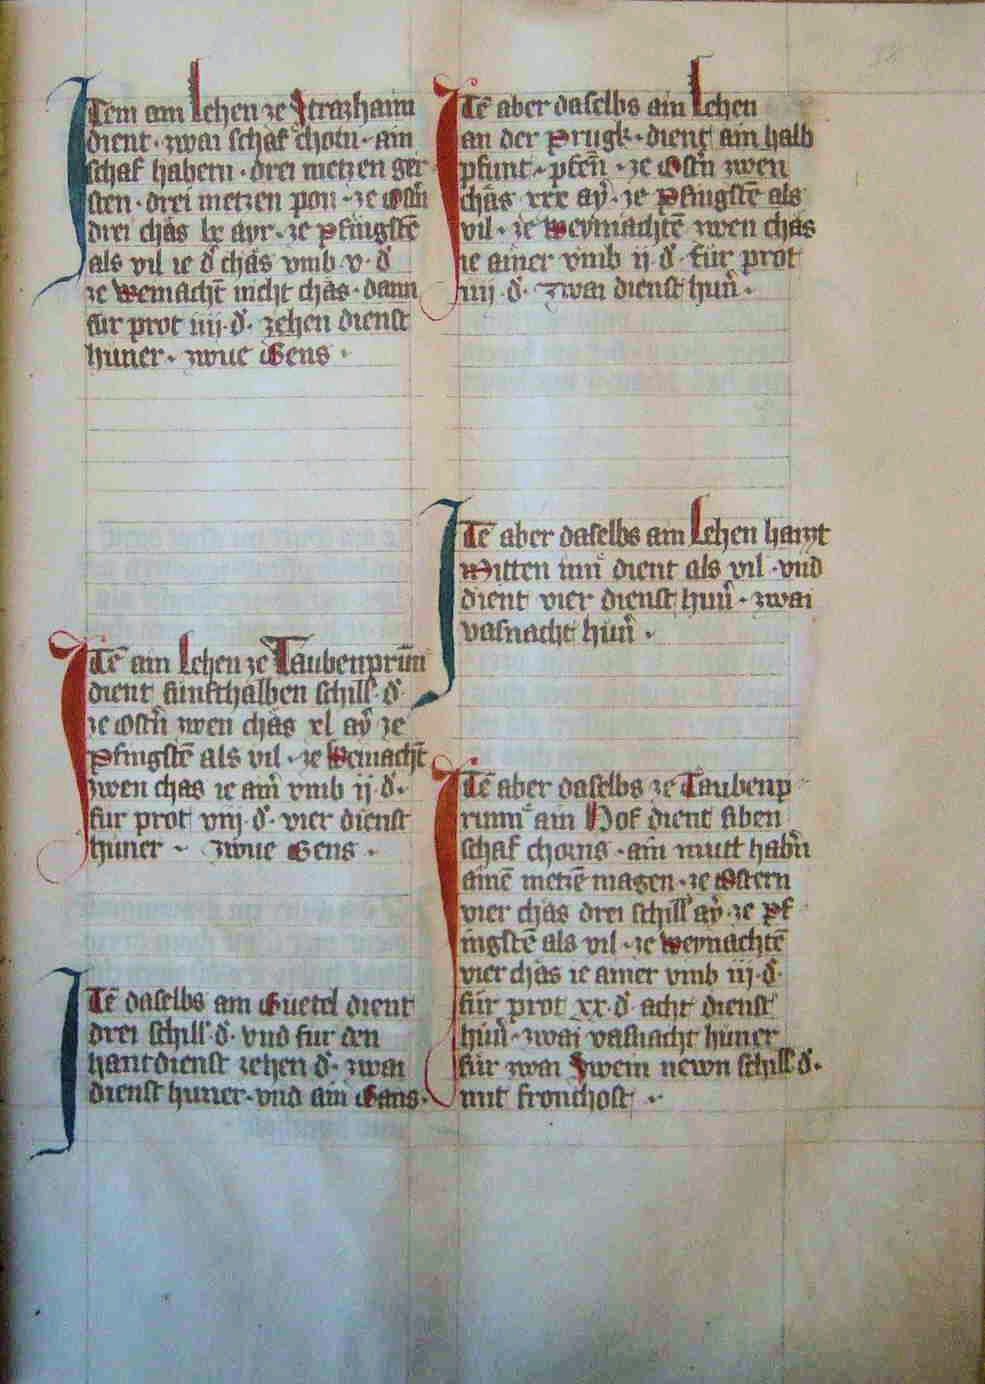 Item ain Lehen ze Strazhaim
dient · zwai schaf chorn · ain
schaf habern · drei metzen ger
sten · drei metzen pon · ze Ostn̄
drei chäs lx ayr · ze Pfingstē
als vil ie d' chäs vmb · v · d'
ze Weinacht̄ nicht chäs · dann
für prot iiij · d' · zehen dienst
hüner · zwue Gens ·
Itē ain Lehen ze Taubenprūn
dient fünfthalben schill' · d' ·
ze Ostn̄ zwen chäs xl aẏ ze
Pfingstē als vil · ze Weinacht̄
zwen chäs ie ain' vmb ij · d' ·
für prot viij · d' · vier dienst
hüner · zwue Gens ·
Itē daselbs ain Guetel dient
drei schill' d' · vnd für den
hantdienst zehen d' · zwai
dienst hüner · vnd ain Gans ·
Itē aber daselbs ain Lehen
an der Prugk · dient ain halb
pfunt · pfen̄ · ze Ostn̄ zwen
chäs xxx aẏ · ze Pfingstē als
vil · ze Weymachtē zwen chäs
ie ainer vmb ij · d' · für prot
iiij · d' · zwai dienst hün' ·
Itē aber daselbs ain Lehen haizt
Mitten inn dient als vil · vnd
dient vier dienst hün' · zwai
vasnacht hün' ·
Itē aber daselbs ze Taubenp
runn ain Hof dient siben
schaf chorns · ain mutt hab'n
ainē metzē magen · ze Ostern
vier chäs drei schill' aẏ · ze Pf
ingstē als vil · ze Weynachtē
vier chäs ie ainer vmb iij · d' ·
für prot xx · d' · acht dienst
hün' · zwai vasnacht hüner
für zwai Swein newn schill' d' ·
mit fronchost ·